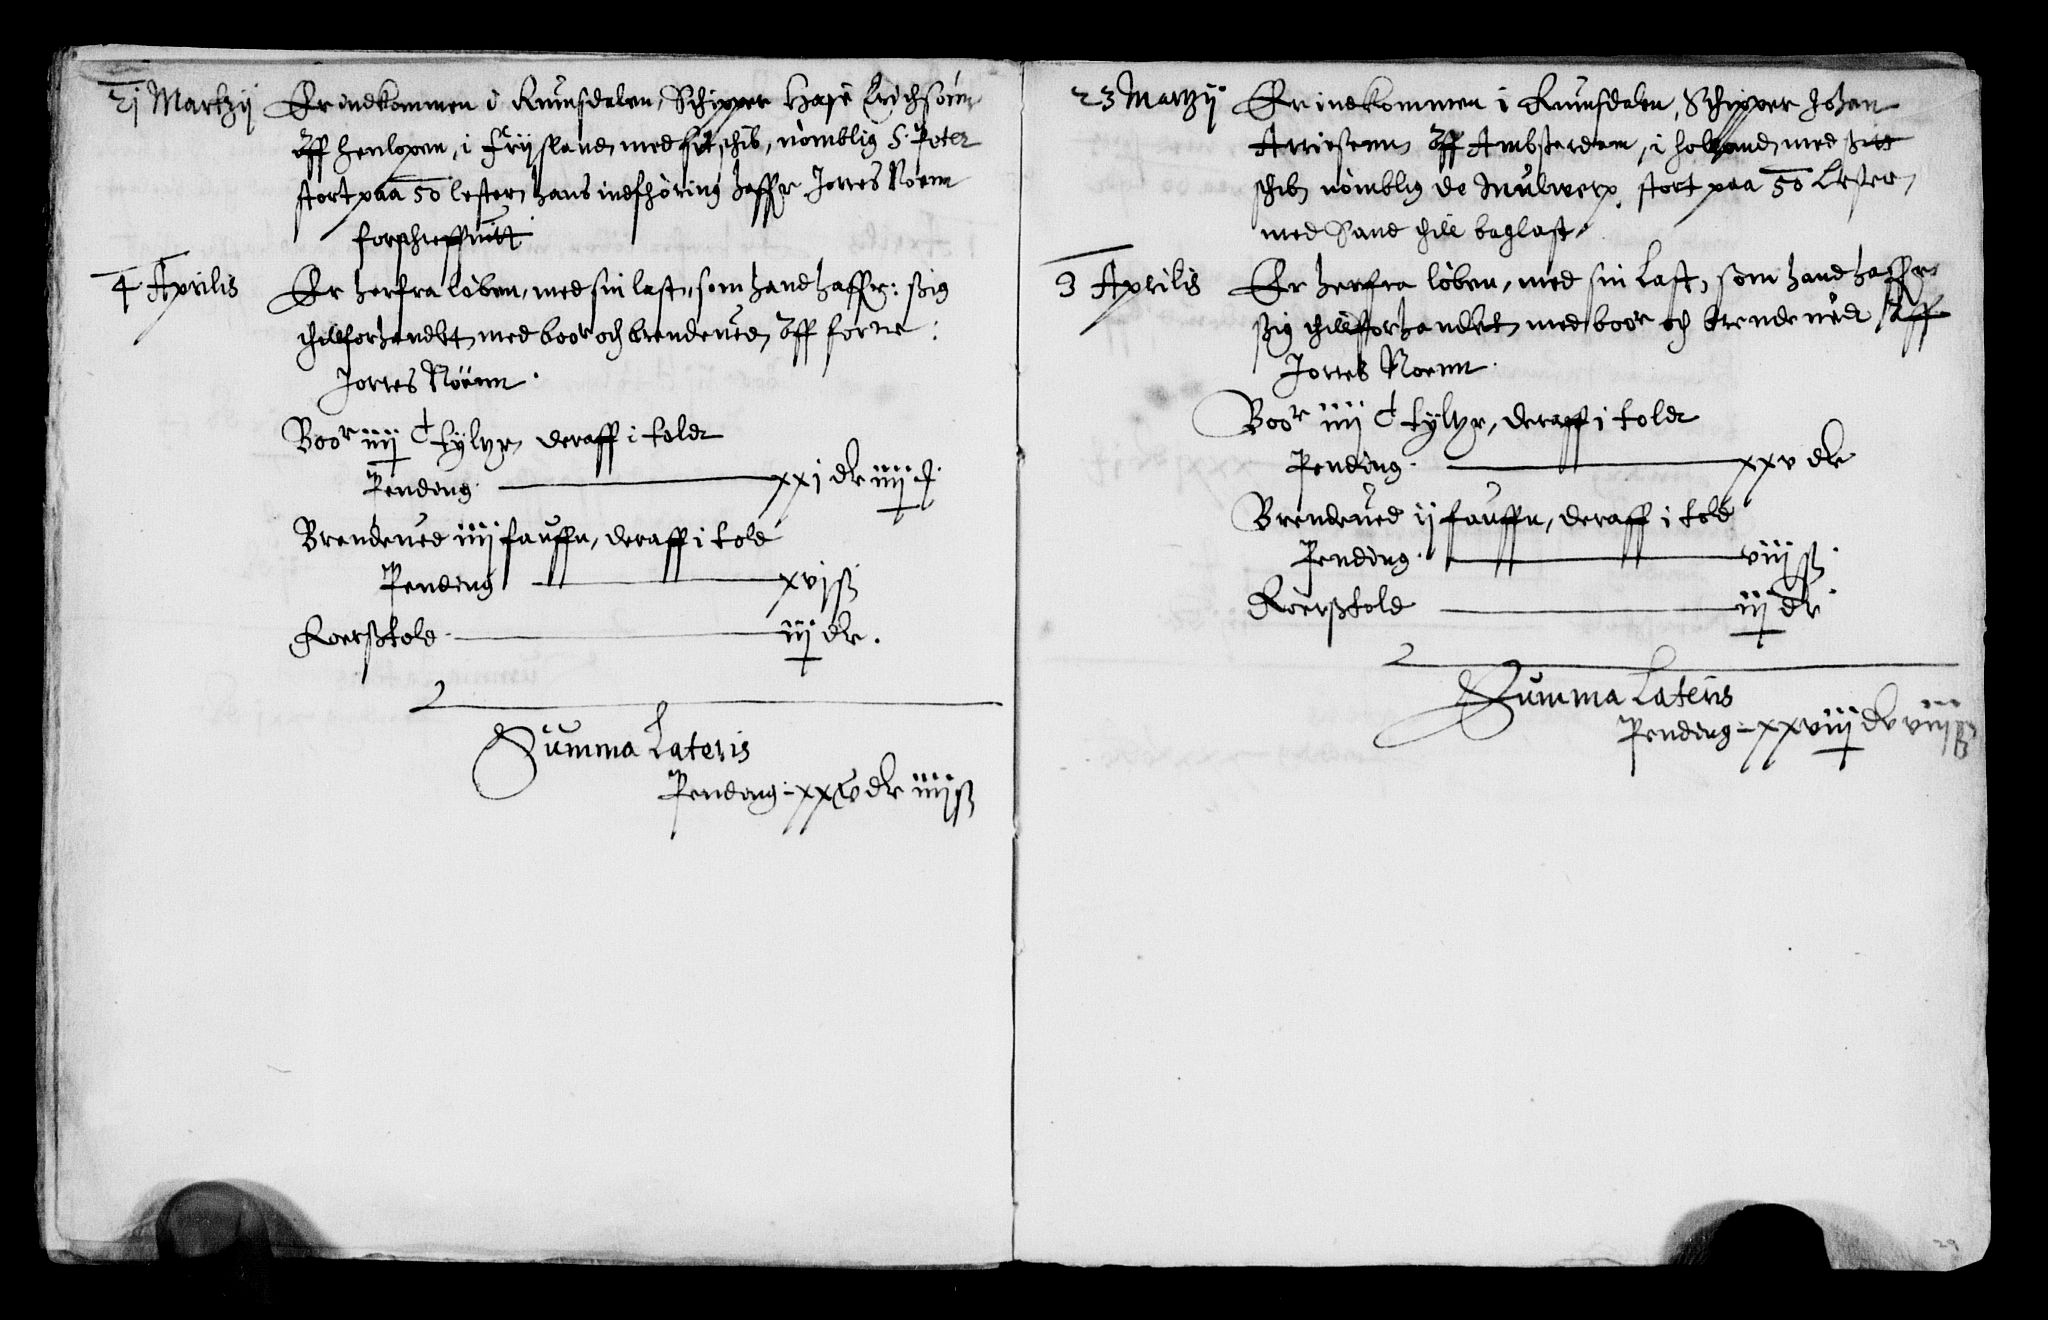 21 Martzij Er indkommen i Rumsdalen, Schipper Haye Erichsönn
Aff Henlopen, i Frijsland, med sit schib, nömblig S. Peter
stort paa 50 lester, hans indfhöring haffr Jorres Noenn
forschreffuitt
4 Aprilis Er herfra löben, med sin last, som hand haffr: ßig
thillforhandlt, med boor och brendeued, Aff forne:
Jorres Nöenn.
Boor iiij C tylter, deraff i told
Pending xxj dlr iiij ß
Brendeued iiij fauffn, deraff i told
Pending xvj ß
Roerßtold iij dlr.
Summa Lateris
Pending - xxv dlr iiij ß
23 Martzij Er indkommen i Rumsdalen, Schipper Johan
Arriesenn Aff Ambsterdam, i Holland, med ßitt
schib, nömblig de Mulwerp, stort paa 50 Lester,
med Sand thill baglast,
3 Aprilis Er herfra löben, med sin Last, som hand haffr
ßig thillforhandlet, med boor och brendeued Aff
Jorres Noenn.
Boor iiij C tylter, deraff i told
Pending. xxv dlr
Brendeued ij fauffn, deraff i told
Pending. viij ß.
Roerßtold iij dlr
Summa Lateris
Pending - xxviij dlr viij ß
29